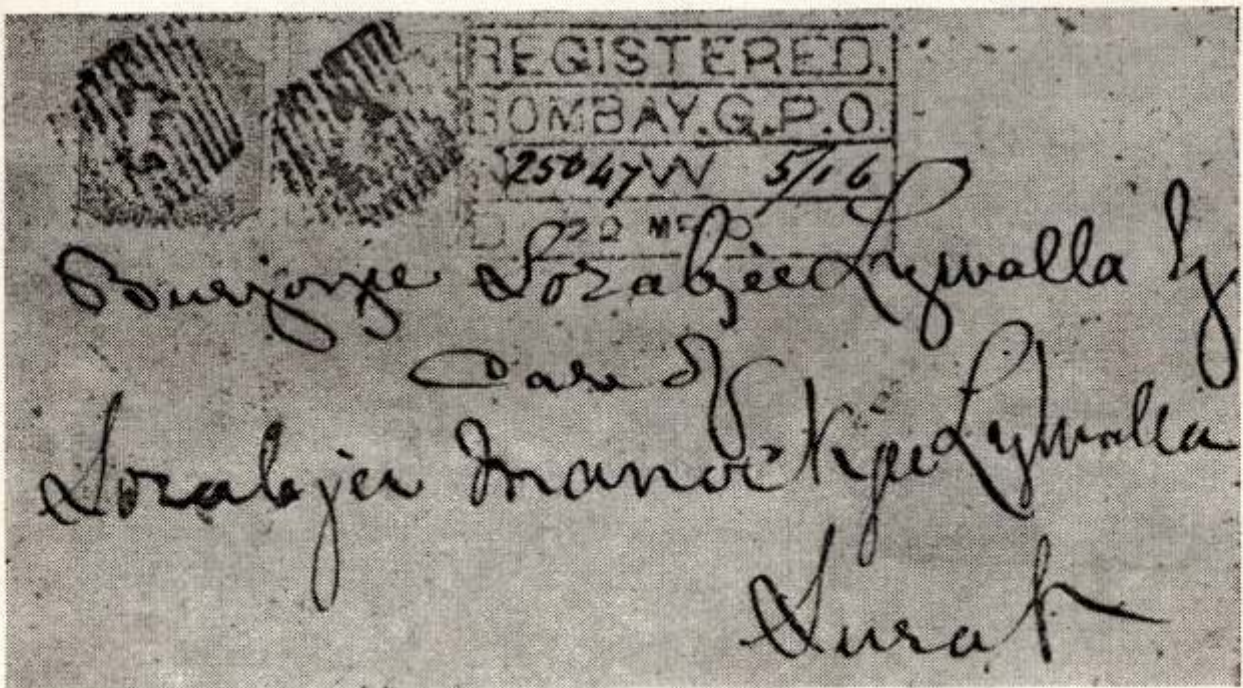 REGISTERED.
BOMBAY.G.P.O.
25047W 5/16
Burjorjee Sorabjee Lywalla
Care of
Sorabjee Manockjee Lywalla
Surat